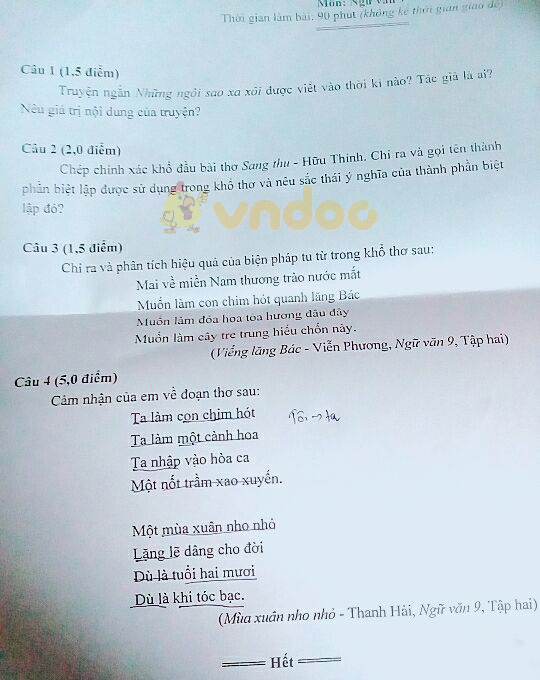 Môn: Ngữ văn
Thời gian làm bài: 90 phút (không kể thời gian giao đề)
Câu 1 (1,5 điểm)
Truyện ngắn Những ngôi sao xa xôi được viết vào thời kì nào? Tác giả là ai?
Nêu giá trị nội dung của truyện?
Câu 2 (2,0 điểm)
Chép chính xác khổ đầu bài thơ Sang thu - Hữu Thỉnh. Chỉ ra và gọi tên thành
phần biệt lập được sử dụng trong khổ thơ và nêu sắc thái ý nghĩa của thành phần biệt
lập đó?
vndoc
Câu 3 (1,5 điểm)
Chỉ ra và phân tích hiệu quả của biện pháp tu từ trong khổ thơ sau:
Mai về miền Nam thương trào nước mắt
Muốn làm con chim hót quanh lăng Bác
Muốn làm đóa hoa tỏa hương đâu đây
Muốn làm cây tre trung hiếu chốn này.
(Viếng lăng Bác - Viễn Phương, Ngữ văn 9, Tập hai)
Câu 4 (5,0 điểm)
Cảm nhận của em về đoạn thơ sau:
Ta làm con chim hót Tôi → ta
Ta làm một cành hoa
Ta nhập vào hòa ca
Một nốt trầm xao xuyến.
Một mùa xuân nho nhỏ
Lặng lẽ dâng cho đời
Dù là tuổi hai mươi
Dù là khi tóc bạc.
(Mùa xuân nho nhỏ - Thanh Hải, Ngữ văn 9, Tập hai)
Hết